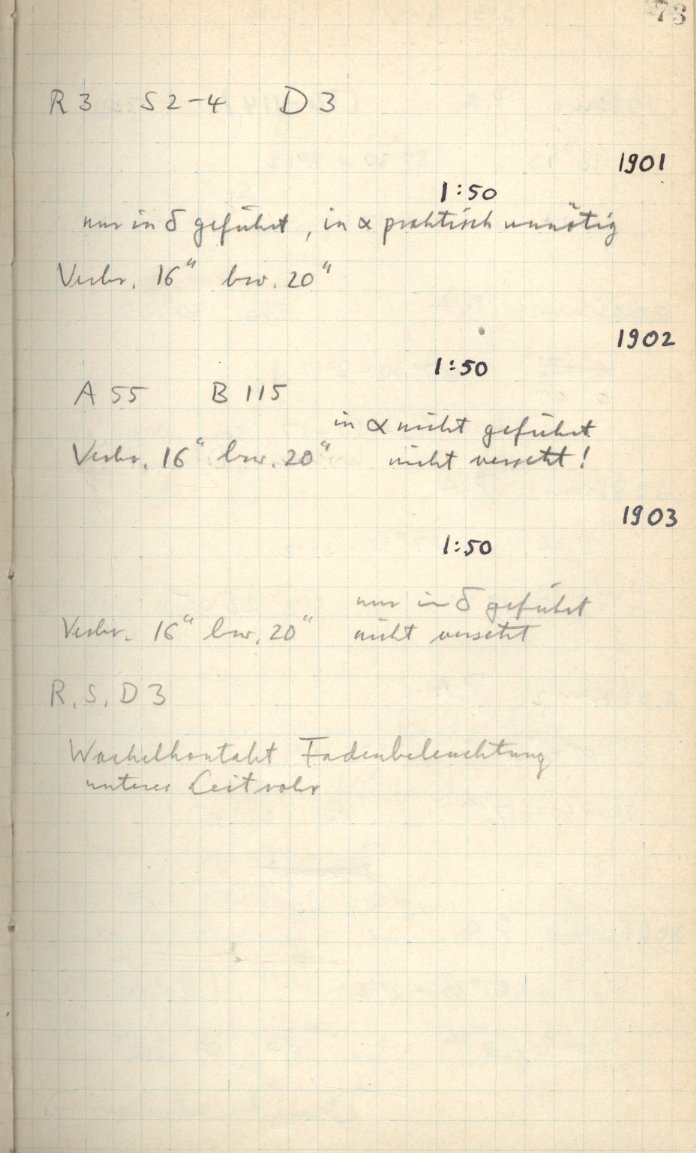 73
R 3 S 2-4 D 3
1901
1:50
nur in δ geführt, in α praktisch unnötig
Verbr. 16" bzw. 20"
1902
1:50
A 55 B 115
in α nicht geführt
Verbr. 16" bzw. 20" nicht versetzt!
1903
1:50
nur in δ geführt
Verbr. 16" bzw. 20" nicht versetzt
R, S, D 3
Wackelkontakt Fadenbeleuchtung
unteres Leitrohr